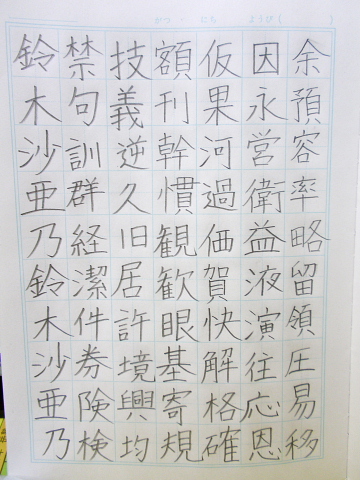 がつ・にち　ようび（　　）
余預容率略留領圧易移
因永営衛益液演往応恩
仮果河過価賀快解格確
額刊幹慣観歓眼基寄規
技義逆久旧居許境興均
禁句訓群経潔件券険検
鈴木沙亜乃鈴木沙亜乃